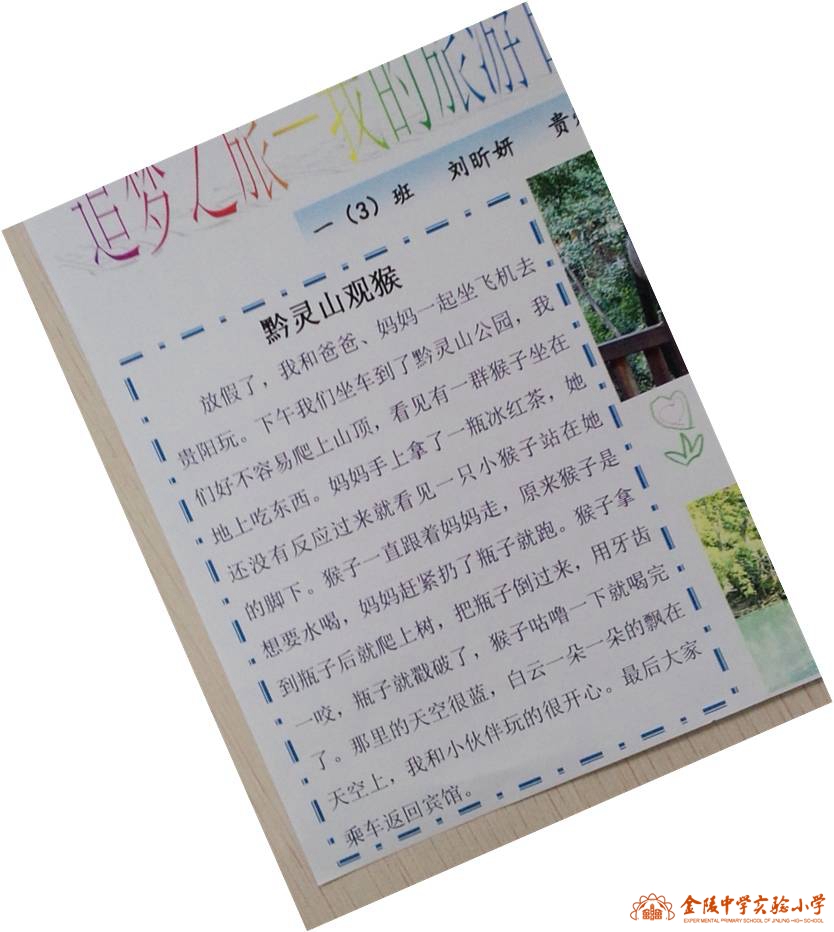 追梦之旅—我的旅游
一（3）班 刘昕妍 贵
黔灵山观猴
放假了，我和爸爸、妈妈一起坐飞机去
贵阳玩。下午我们坐车到了黔灵山公园，我
们好不容易爬上山顶，看见有一群猴子坐在
地上吃东西。妈妈手上拿了一瓶冰红茶，她
还没有反应过来就看见一只小猴子站在她
的脚下。猴子一直跟着妈妈走，原来猴子是
想要水喝，妈妈赶紧扔了瓶子就跑。猴子拿
到瓶子后就爬上树，把瓶子倒过来，用牙齿
一咬，瓶子就戳破了，猴子咕噜一下就喝完
了。那里的天空很蓝，白云一朵一朵的飘在
天空上，我和小伙伴玩的很开心。最后大家
乘车返回宾馆。
金陵中学实验小学
EXPERIMENTAL PRIMARY SCHOOL OF JINLING HIGH SCHOOL